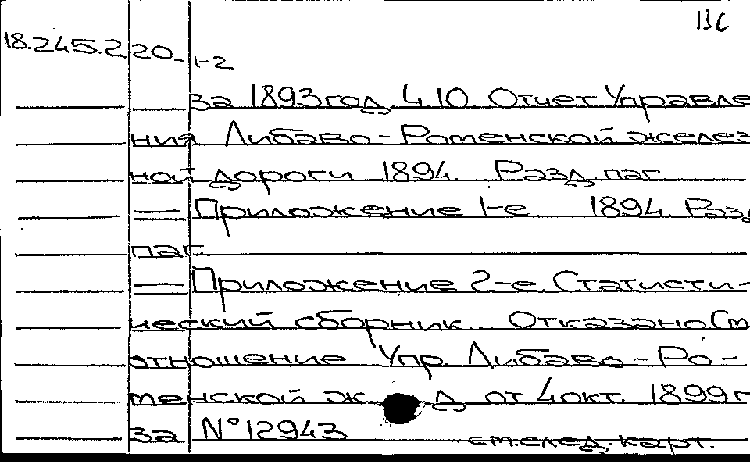 116
18.245.2.20. 1-2
за 1893 год. 4.10 Отчет Управле
ния Либаво-Роменской желез
ной дороги 1894. Разд. паг
— Приложение 1-е 1894. Разд
паг.
— Приложение 2-е. Статисти-
ческий сборник. Отказано (см
отношение Упр. Либаво-Ро-
менской ж д. от 4 окт. 1899 г
за № 12943
см. след. карт.